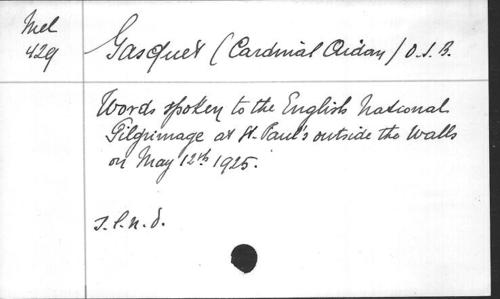 Mel
429
Gasquet (Cardinal Aidan) O.S.B.
Words spoken to the English National
Pilgrimage at St. Paul's outside the Walls
on May 12th 1925.
s.l.n.d.